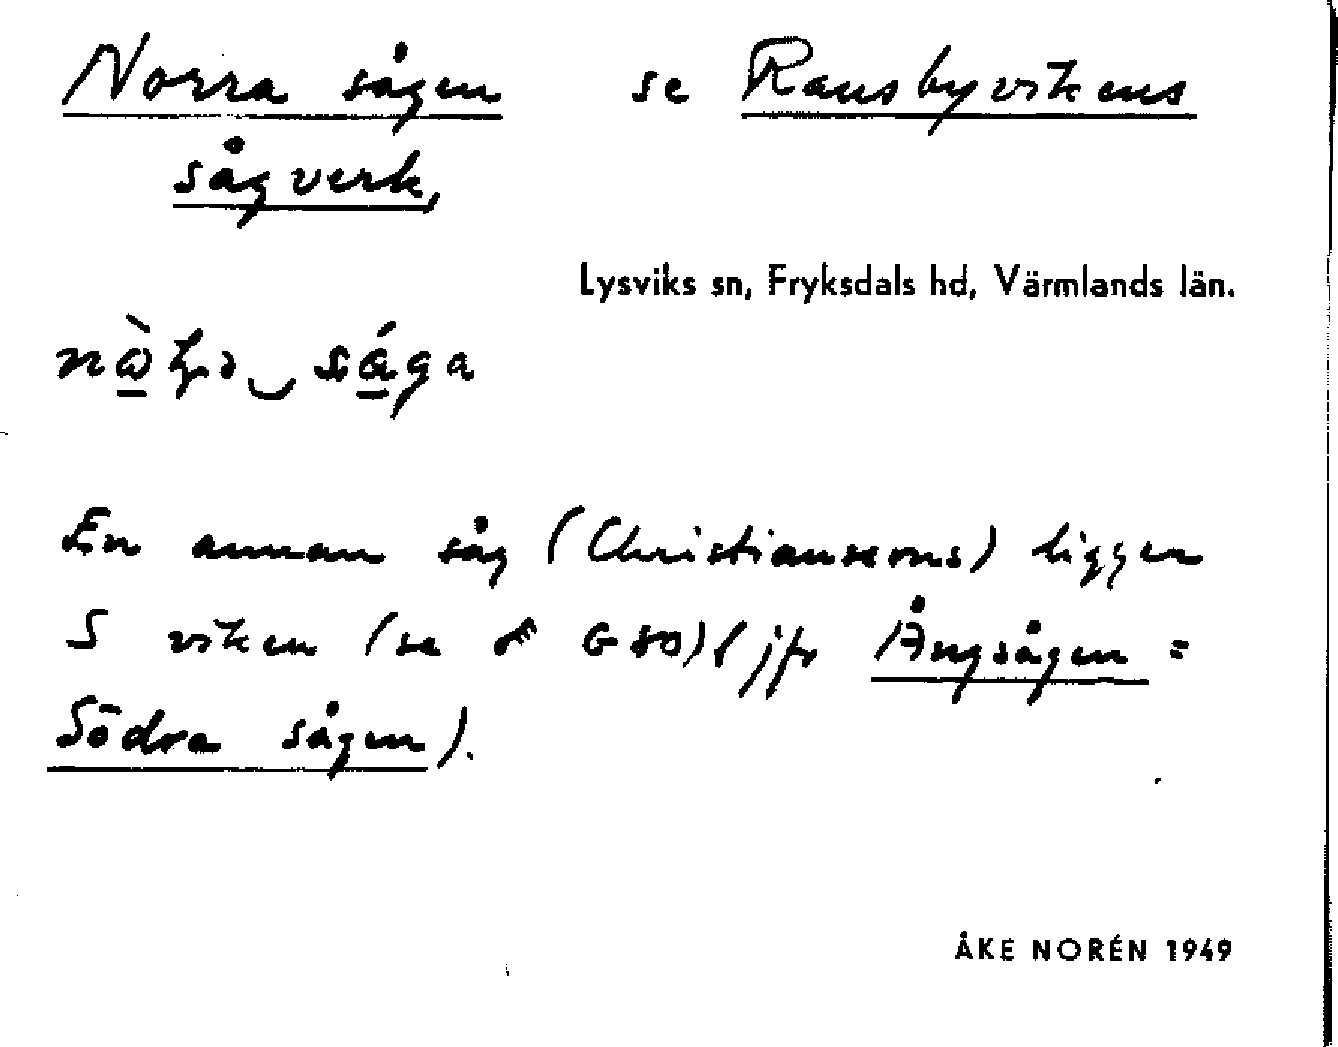 Norra sågen se Ransbyvikens
sågverk,
Lysviks sn, Fryksdals hd, Värmlands län.
sága
En annan såg (Christiansens) ligger
S viken (se G80) (jfr Ångsågen =
Södra sågen).
ÅKE NORÉN 1949